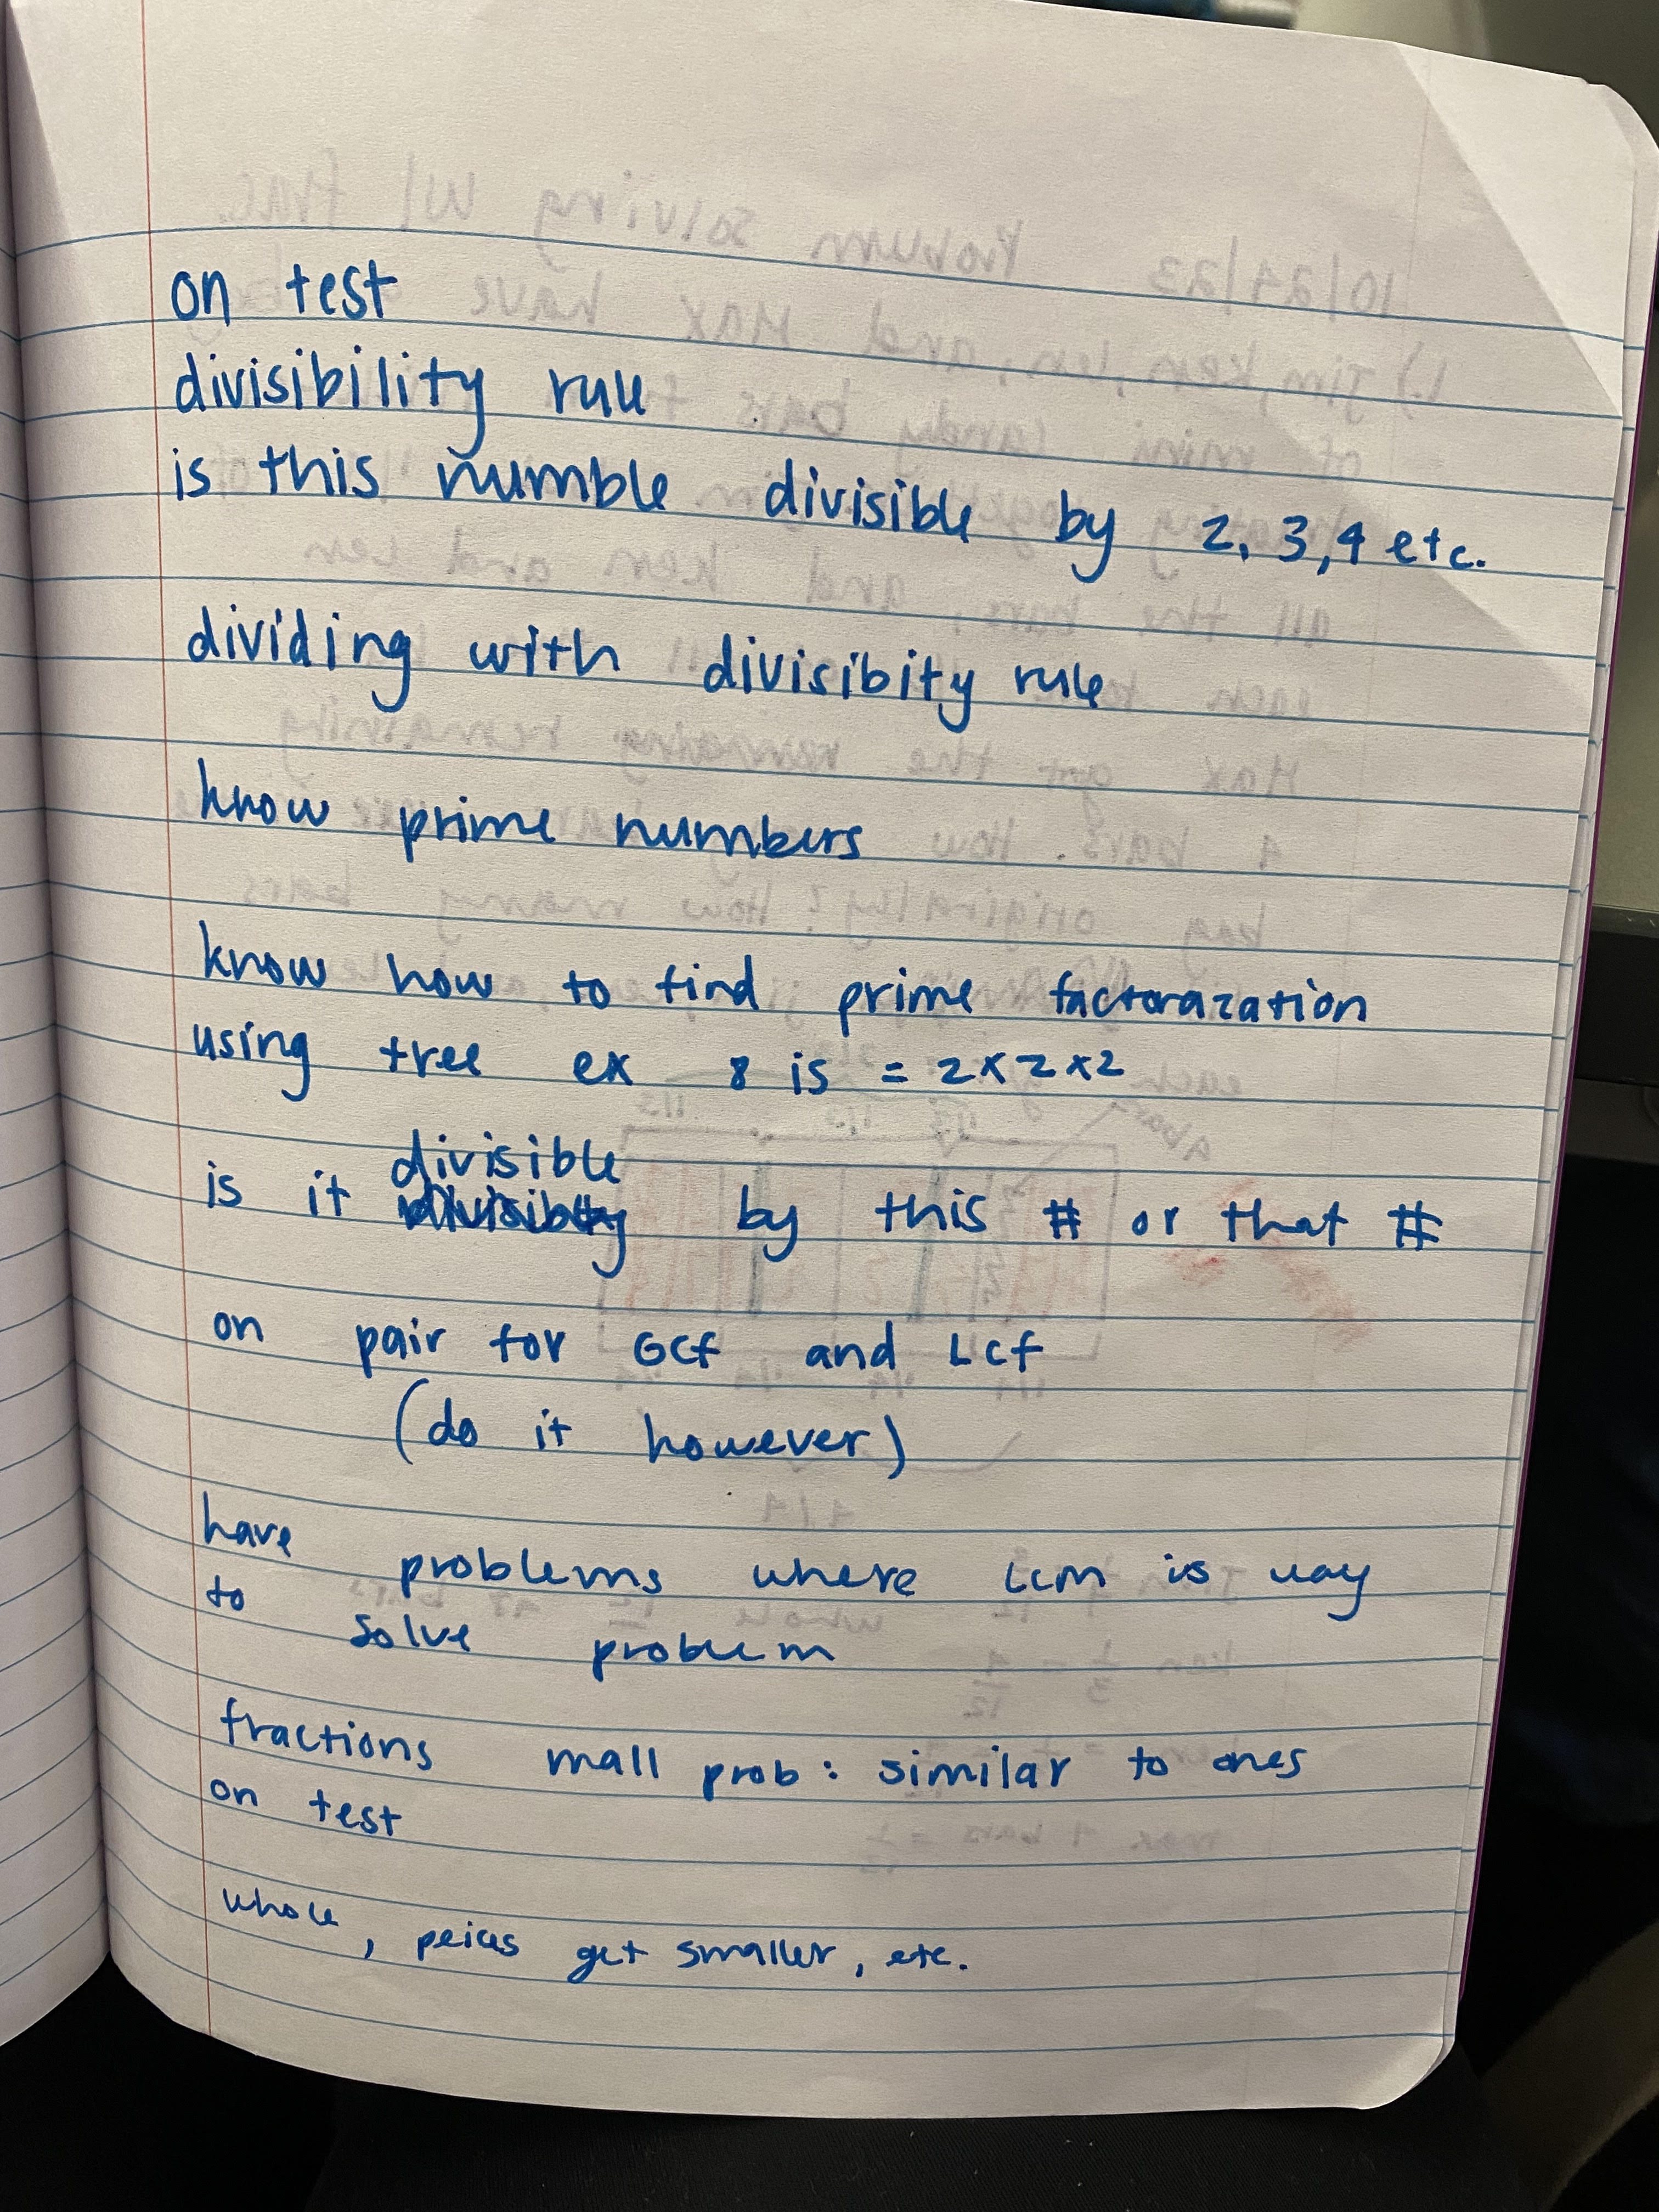 on test
divisibility rule
is this numble divisible by 2, 3, 4 etc.
dividing with divisibity rule
know prime numbers
know how to find prime factorazation
using tree ex 8 is = 2x2x2
divisible
is it by this # or that #
on pair for GCf and Lcf
(do it however)
have problems where LCM is way
to solve problem
fractions mall prob: similar to ones
on test
whole, peices get smaller, etc.